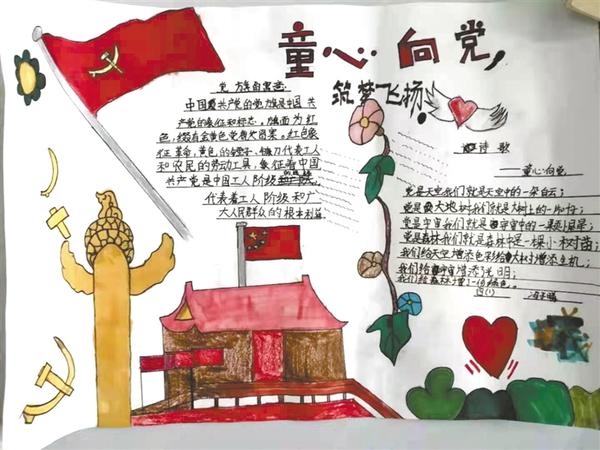 童心向党,
筑梦飞扬!
党旗的寓意:
中国共产党的党旗是中国共
产党的象征和标志。旗面为红
色,缀有金黄色党徽图案。红色象
征革命,黄色的锤子、镰刀代表工人
和农民的劳动工具,象征着中国
共产党是中国工人阶级的先锋队,
代表着工人阶级和广
大人民群众的根本利益
诗歌
——童心向党
党是天空,我们就是天空中的一朵白云;
党是大地,我们就是大树上的一片叶子;
党是宇宙,我们就是宇宙中的一颗星星;
党是森林,我们就是森林中是一棵小树苗;
我们给天空增添色彩给大树增添生机;
我们给宇宙增添光明;
我们给森林增一份绿色。
四(1)